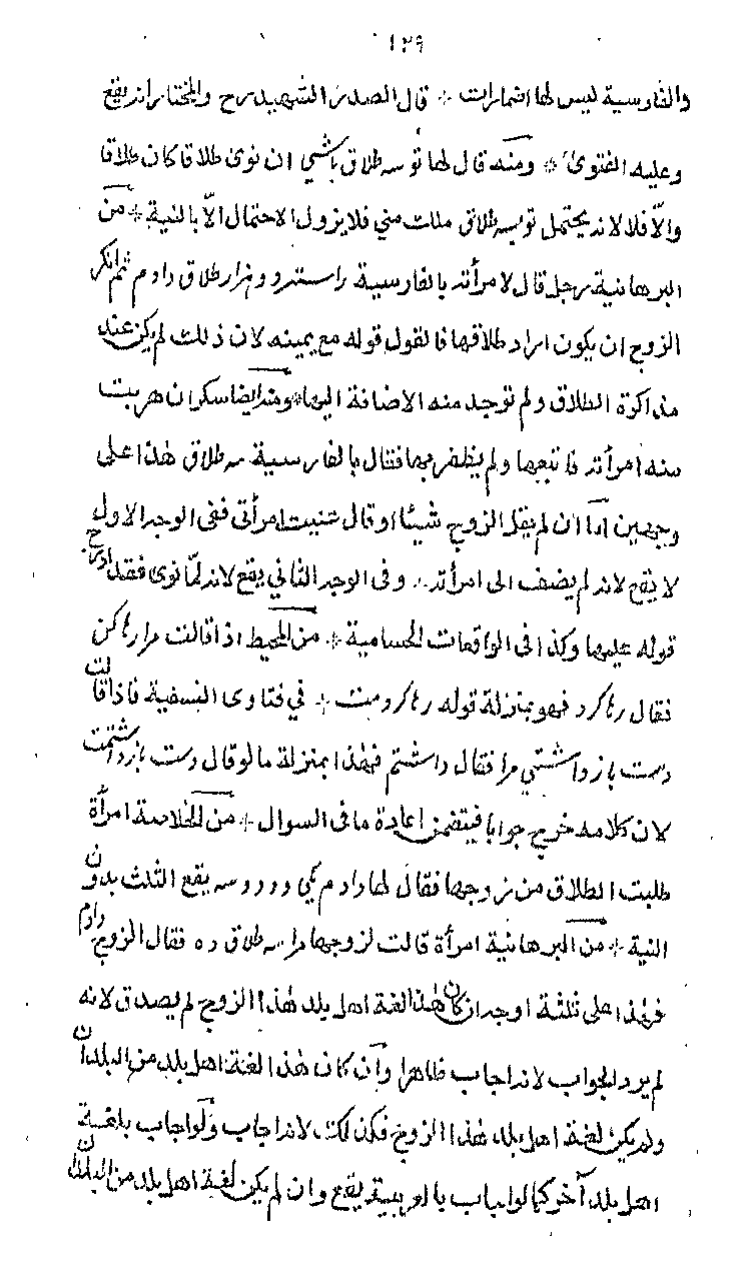 ١٢٩
والفارسية ليس لها اضمارات * قال الصدر الشهيد رح والمختار انه يقع
وعليه الفتوى * ومنه قال لها تو سه طلاق باشي ان نوى طلاقا كان طلاقا
والّا فلا لانه يحتمل توسه طلاق منى فلا يزول الاحتمال الّا بالنية * من
البرهانية رجل قال لامرأته بالفارسية را ستدو وهزار طلاق دادم ثم انكر
الزوج ان يكون اراد طلاقها فالقول قوله مع يمينه لان ذلك لم يكن عند
مذاكرة الطلاق ولم توجد منه الاضافة اليها * ومنه ايضا سكران هربت
منه امرأته فاتبعها ولم يظفر بها فقال بالفارسية سه طلاق هذا على
وجهين امّا ان لم يقل الزوج شيئا او قال عنيت امرأتي ففى الوجه الاول
لا يقع لانه لم يضف الى امرأته .. وفى الوجه الثاني يقع لانه لمّا نوى فقد
قوله عليها وكذا فى الواقعات الحسامية * من المحيط اذا قالت مرا رها كن
فقال رها كرد فهو بمنزلة قوله رها كردمت * في فتاوى النسفية فاذا قالت
دست باز داشتي مرا فقال داشتم فهذا بمنزلة ما لو قال دست باز داشتمت
لان كلامه خرج جوابا فيتضمن اعادة ما فى السوال * من الخلاصة امرأة
طلبت الطلاق من زوجها فقال لها دادم يكي ودو وسه يقع الثلث بدون
النية * من البرهانية امرأة قالت لزوجها مرا سه طلاق ده فقال الزوج دادم
فهذا على ثلثة اوجه ان كان هذا لغة اهل بلد هذا الزوج لم يصدق لانه
لم يرد الجواب لانه اجاب ظاهرا وان كان هذا لغة اهل بلد من البلدان
ولم يكن لغة اهل بلد هذا الزوج فكذلك لانه اجاب ولو اجاب بلغة
اهل بلد آخر كما لو اجاب بالعربية يقع وان لم يكن لغة اهل بلد من البلدان